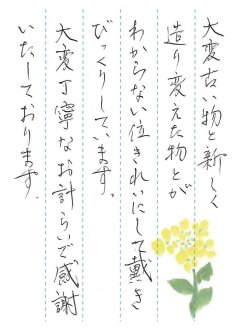 大変古い物と新しく
造り変えた物とが
わからない位きれいにして戴き
びっくりしています。
大変丁寧なお計らいで感謝
いたしております.